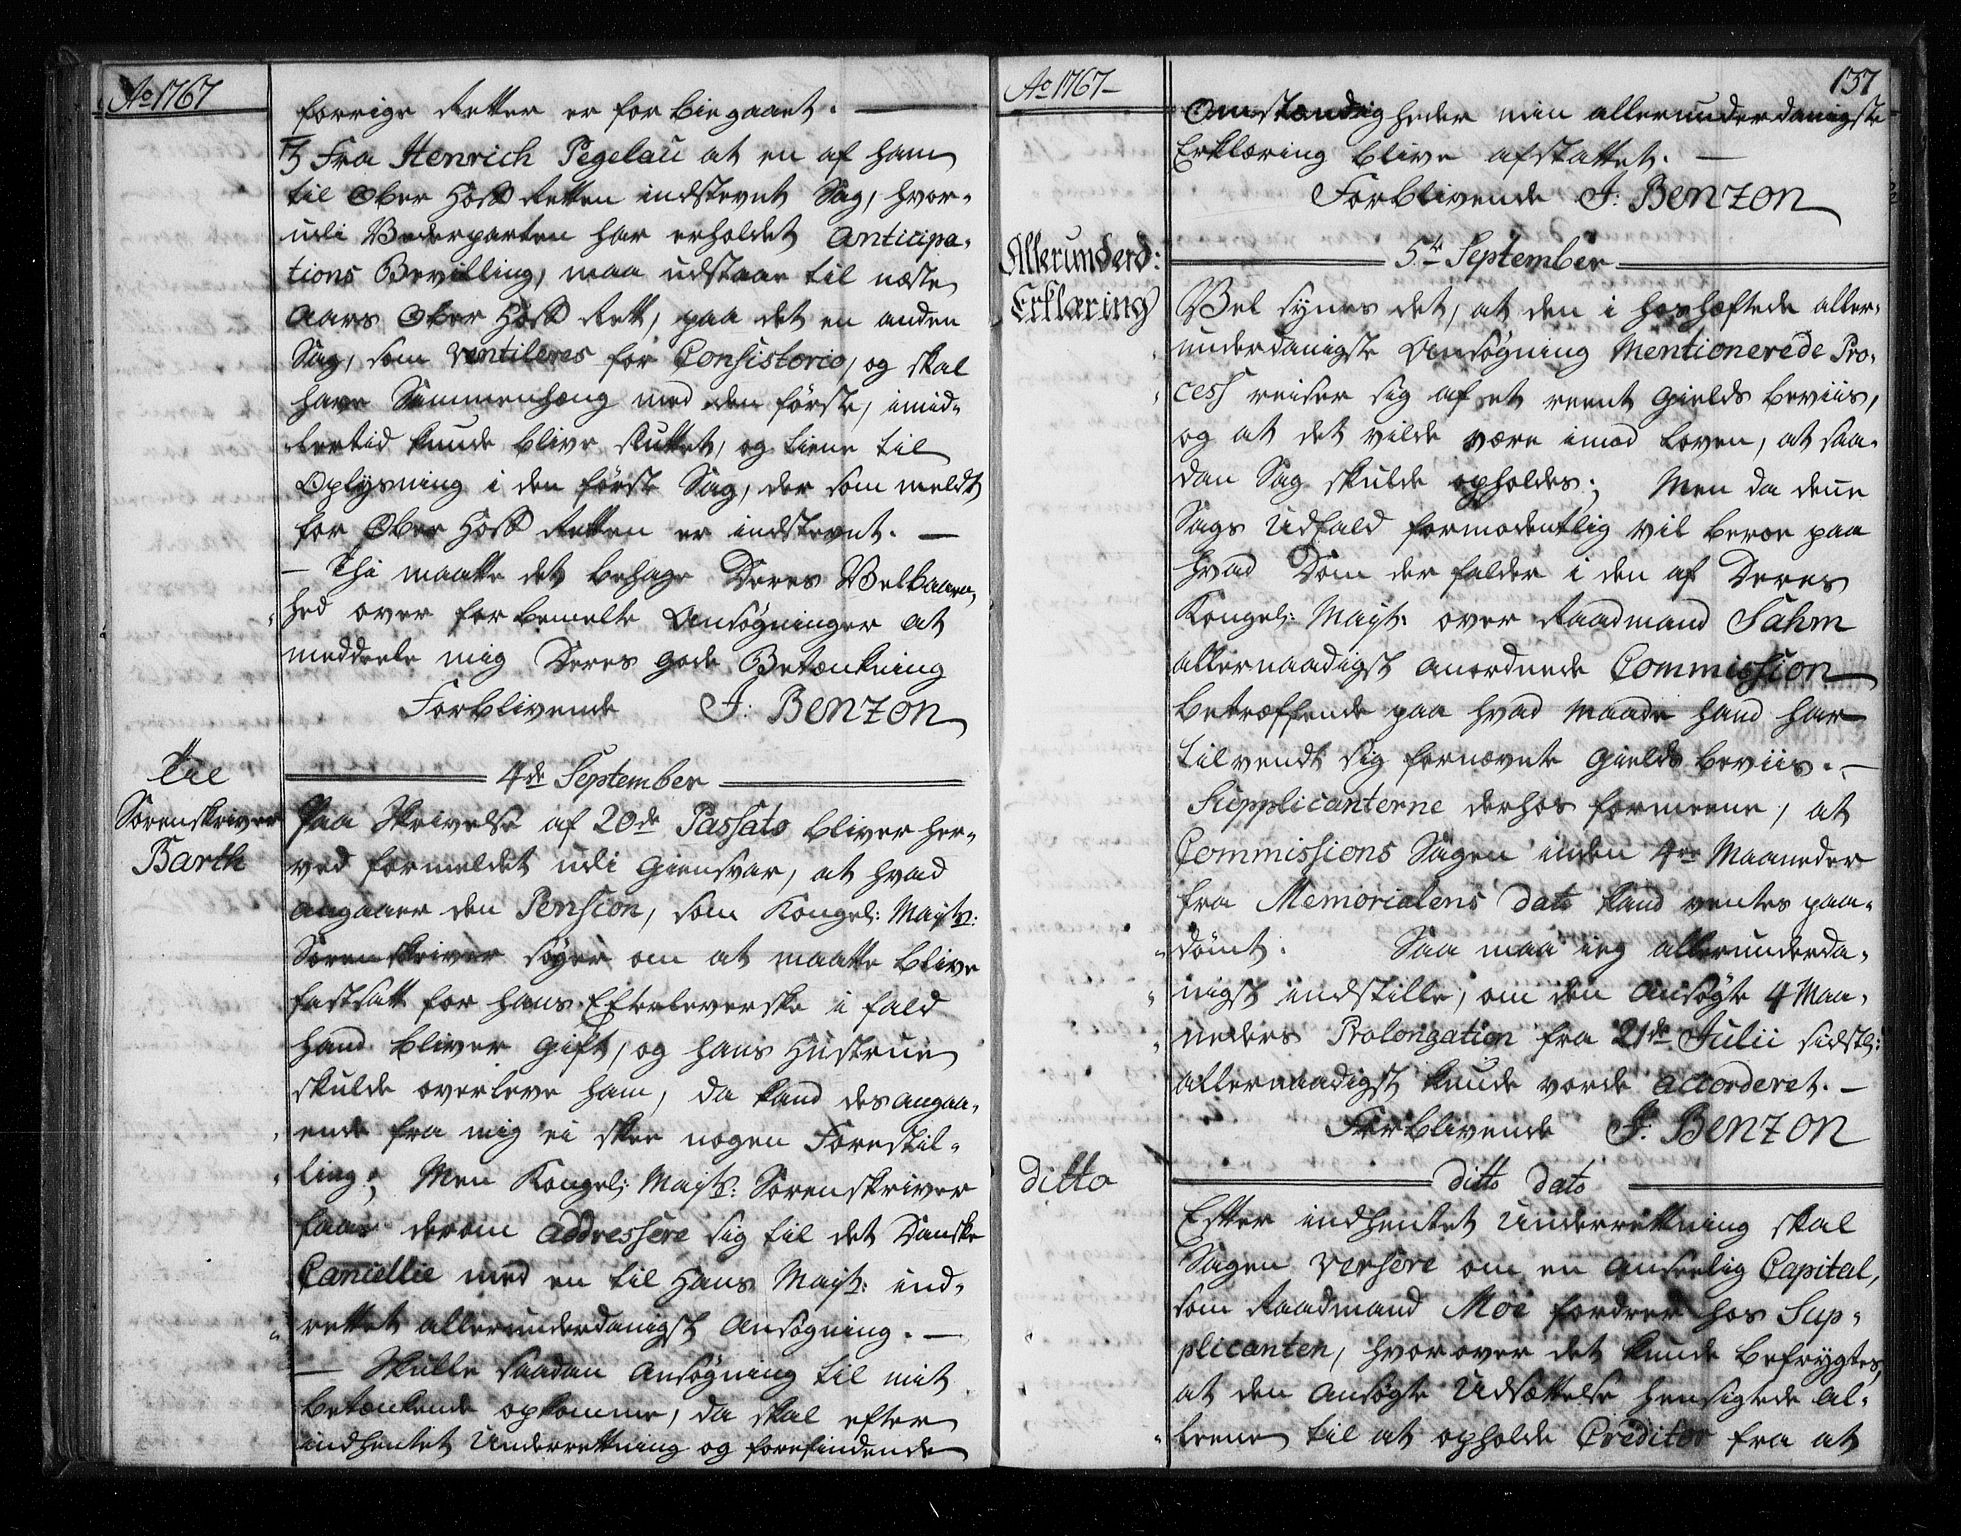 Ao 1767
forrige Retter er forbiegaaet. —
Fra Henrich Pegelau at en af ham
til Ober Hoff Retten indstevnt Sag, hvor-
udi Vederparten har erholdet Anticipa-
tions Bevilling, maa udstaae til næste
Aars Ober Hoff Rett, paa det en anden
Sag, som ventileres for Consistorio, og skal
have Sammenhæng med den første, imid-
lertid kunde blive sluttet, og tiene til
Oplysning i den første Sag, der som meldt
for Ober Hoff Retten er indstevnt. —
— Thi maatte det behage Deres Velbaaren-
hed over forbemelte Ansøgninger at
meddeele mig Deres gode Betænkning
Forblivende J: Benzon
Til
Sorenskriver
Barth
4de September
Paa Skrivelse af 20de Passato bliver her-
ved formeldet udi Giensvar, at hvad
angaaer den Pension, som Kongel: Mayts:
Sorenskriver søger om at maatte blive
fastsatt for hans Efterleverske i fald
hand bliver gift, og hans Hustrue
skulde overleve ham, da kand desangaa-
ende fra mig ei skee nogen Forestil-
ling; Men Kongel: Mayts: Sorenskriver
faaer derom addressere sig til det Danske
Cancellie med en til Hans Mayts: ind-
rettet allerunderdanigst Ansøgning. —
— Skulle saadan Ansøgning til mit
Betænkende opkomme, da skal efter
indhentet Underrettning og forefindende
Ao 1767 —
137
Omstændigheder min allerunderdanigste
Erklæring blive afstattet. —
Forblivende J: Benzon
Allerunderd:
Erklæring
5te September
Vel synes det, at den i hoshæftede aller-
underdanigste Ansøgning mentionerede Pro-
cess reiser sig af et reent Gields Beviis,
og at det vilde være imod Loven, at saa-
dan Sag skulde opholdes; Men da denne
Sags Udfald formodentlig vil beroe paa
hvad Dom der falder i den af Deres
Kongel: Mayts: over Raadmand Sahm
allernaadigst anordnede Commission
betræffende paa hvad Maade hand har
tilvendt sig fornævnte Gields Beviis. —
Supplicanterne derhos formeene, at
Commissions Sagen inden 4re Maaneder
fra Memorialens dato kand ventes paa-
dømt. Saa maa ieg allerunderda-
nigst indstille, om den ansøgte 4 Maa-
neders Prolongation fra 21de Julii sidstl:
allernaadigst kunde vorde accorderet. —
Forblivende J. Benzon
ditto
ditto dato
Efter indhentet Underrettning skal
Sagen versere om en anseelig Capital,
som Raadmand Moe fordrer hos Sup-
plicanten, hvorover det kunde befrygtes,
at den ansøgte Udsættelse hensigtede al-
leene til at opholde Creditor fra at